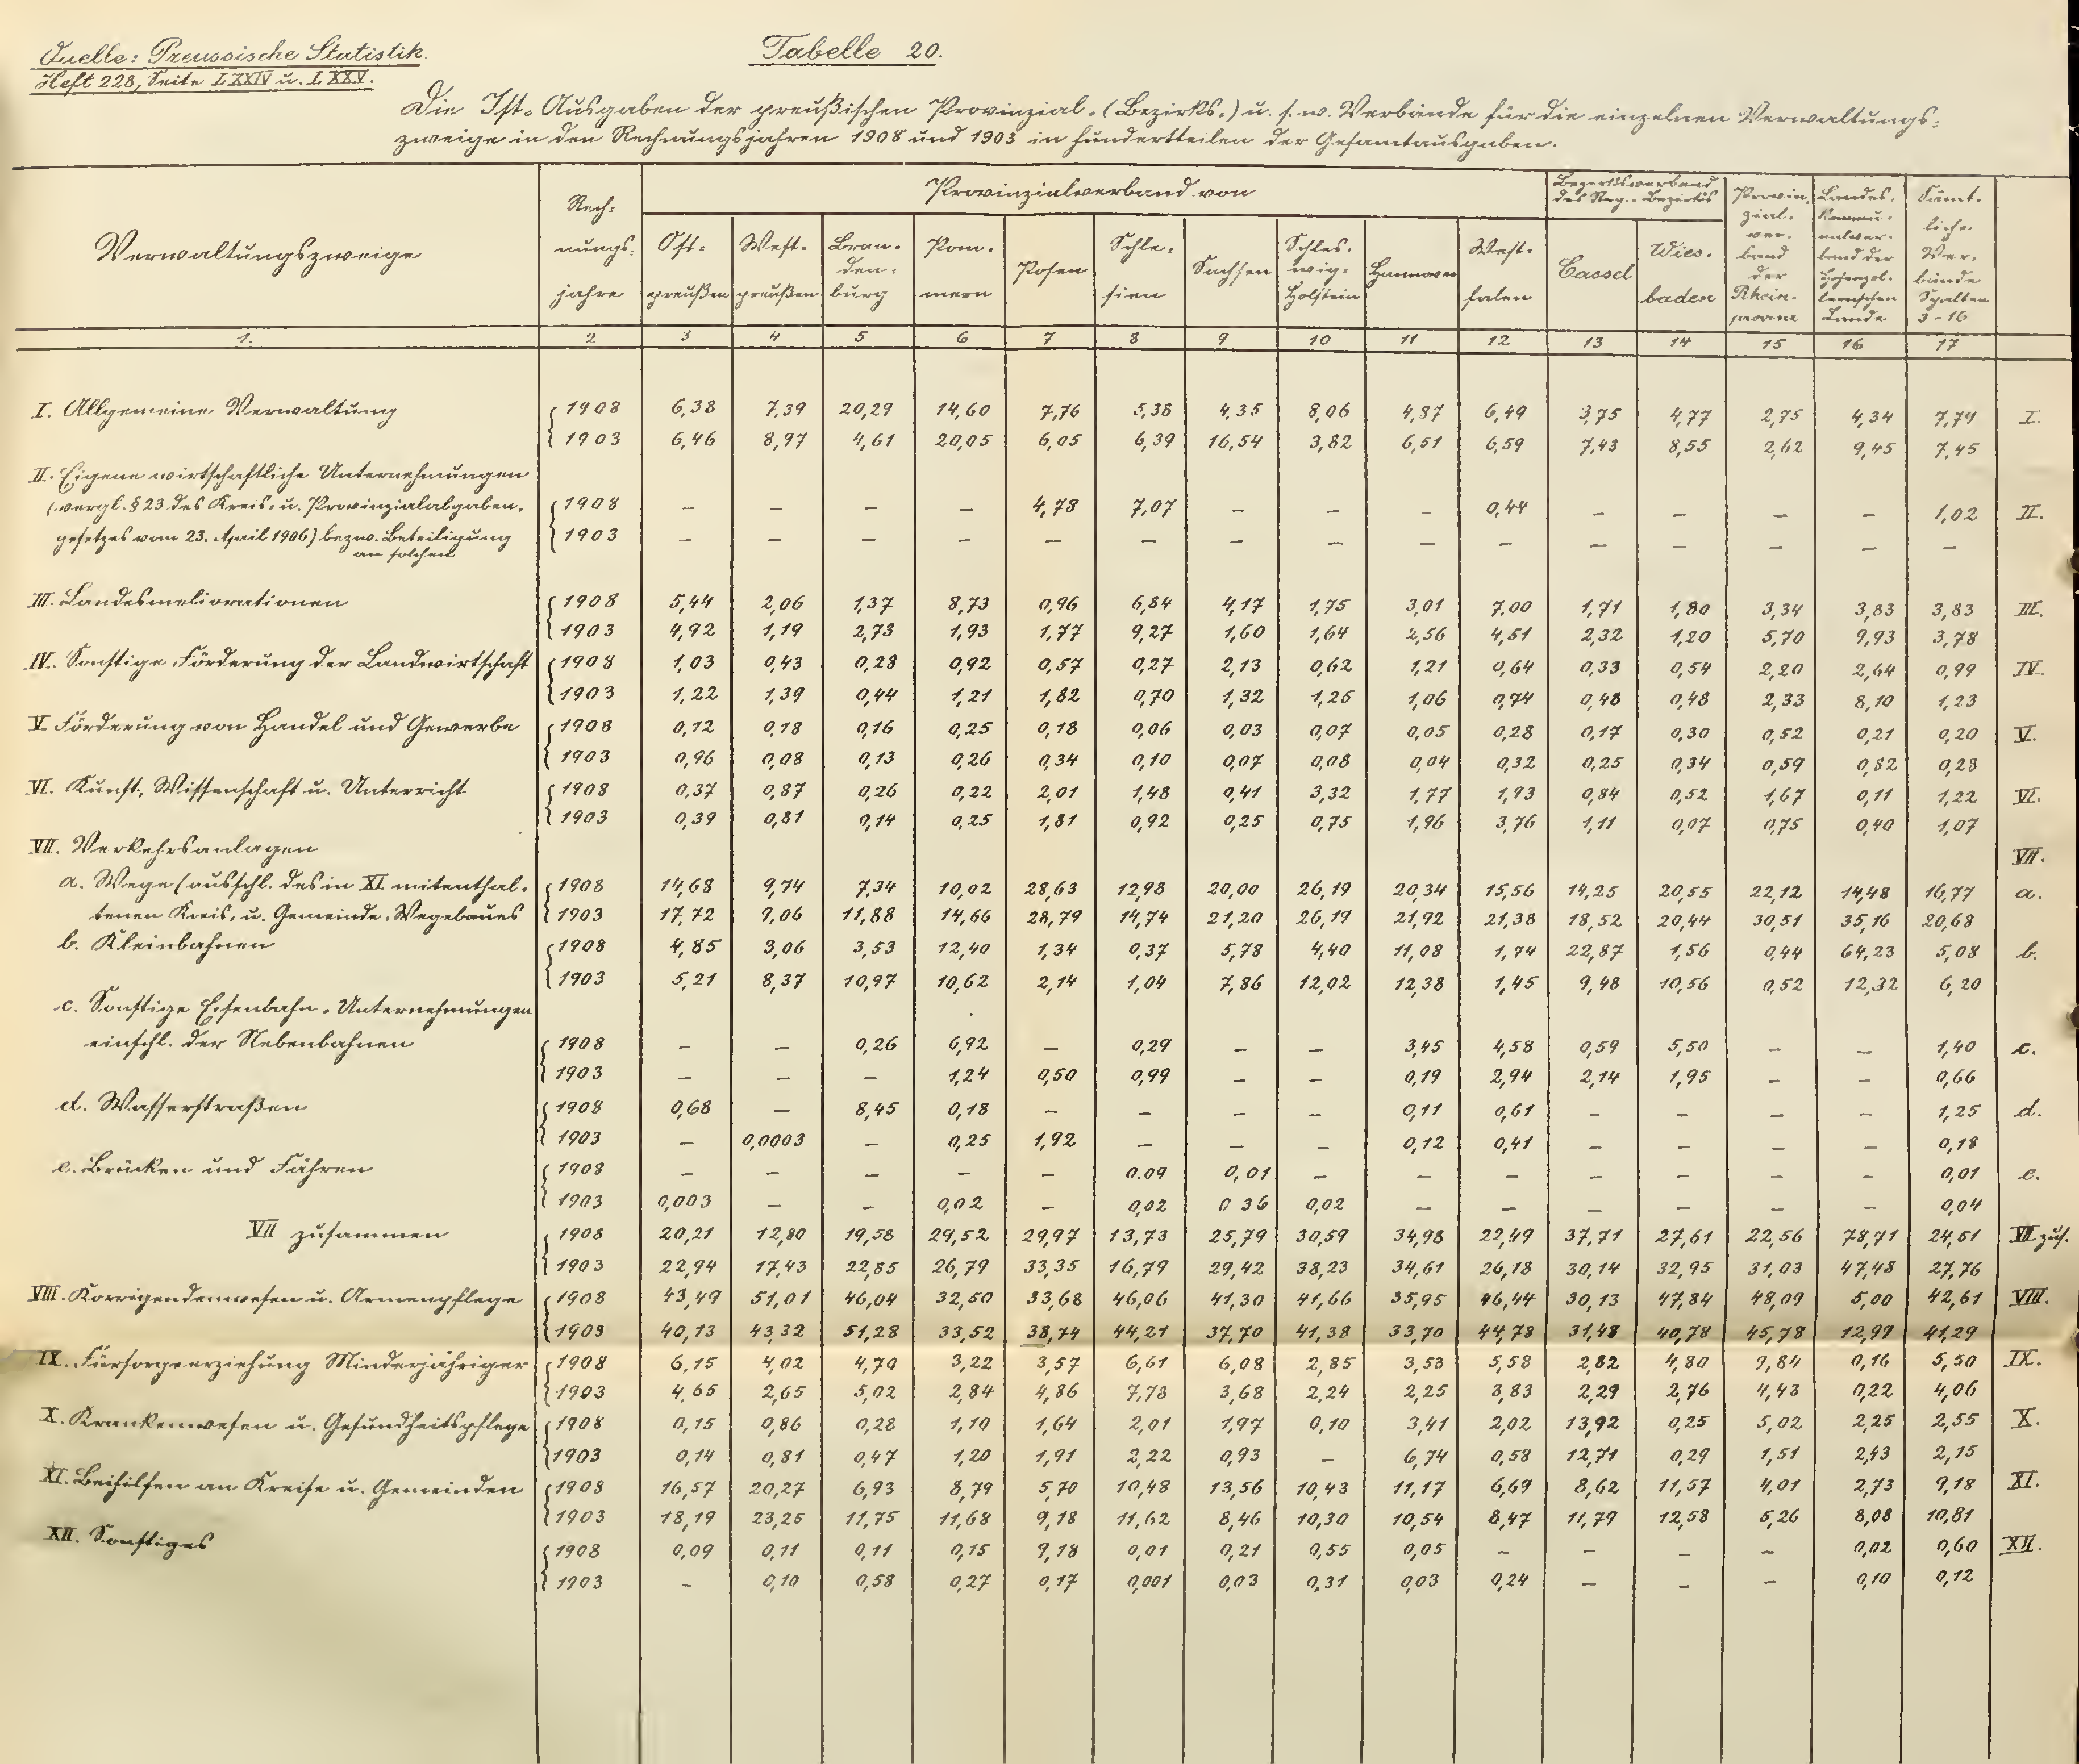 Quelle: Preussische Statistik.
Heft 228, Seite LXXIV u. LXXV.
Tabelle 20.
Die Ist-Ausgaben der preußischen Provinzial-(Bezirks-) u. s. w. Verbände für die einzelnen Verwaltungs-
zweige in den Rechnungsjahren 1908 und 1903 in Hundertteilen der Gesamtausgaben.
Verwaltungszweige | Rechnungsjahre | Provinzialverband von | Bezirksverband des Reg.-Bezirks | Provinzialverband der Rheinprovinz | Landeskommunalverband der Hohenzollernschen Lande | Sämtliche Verbände Spalten 3-16
Ostpreußen | Westpreußen | Brandenburg | Pommern | Posen | Schlesien | Sachsen | Schleswig-Holstein | Hannover | Westfalen | Cassel | Wiesbaden
1. 2 3 4 5 6 7 8 9 10 11 12 13 14 15 16 17
I. Allgemeine Verwaltung 1908 6,38 7,39 20,29 14,60 7,76 5,38 4,35 8,06 4,87 6,49 3,75 4,77 2,75 4,34 7,74 I.
1903 6,46 8,97 4,61 20,05 6,05 6,39 16,54 3,82 6,51 6,59 7,43 8,55 2,62 9,45 7,45
II. Eigene wirtschaftliche Unternehmungen
(vergl. § 23 des Kreis- u. Provinzialabgaben- 1908 – – – – 4,78 7,07 – – – 0,44 – – – – 1,02 II.
gesetzes vom 23. April 1906) bezw. Beteiligung 1903 – – – – – – – – – – – – – – –
an solchen
III. Landesmeliorationen 1908 5,44 2,06 1,37 8,73 0,96 6,84 4,17 1,75 3,01 7,00 1,71 1,80 3,34 3,83 3,83 III.
1903 4,92 1,19 2,73 1,93 1,77 9,27 1,60 1,64 2,56 4,51 2,32 1,20 5,70 9,93 3,78
IV. Sonstige Förderung der Landwirtschaft 1908 1,03 0,43 0,28 0,92 0,57 0,27 2,13 0,62 1,21 0,64 0,33 0,54 2,20 2,64 0,99 IV.
1903 1,22 1,39 0,44 1,21 1,82 0,70 1,32 1,25 1,06 0,74 0,48 0,48 2,33 8,10 1,23
V Förderung von Handel und Gewerbe 1908 0,12 0,18 0,16 0,25 0,18 0,06 0,03 0,07 0,05 0,28 0,17 0,30 0,52 0,21 0,20 V.
1903 0,96 0,08 0,13 0,26 0,34 0,10 0,07 0,08 0,04 0,32 0,25 0,34 0,59 0,82 0,28
VI. Kunst, Wissenschaft u. Unterricht 1908 0,37 0,87 0,26 0,22 2,01 1,48 0,41 3,32 1,77 1,93 0,84 0,52 1,67 0,11 1,22 VI.
1903 0,39 0,81 0,14 0,25 1,81 0,92 0,25 0,75 1,96 3,76 1,11 0,07 0,75 0,40 1,07
VII. Verkehrsanlagen VII.
a. Wege (ausschl. des in XI mitenthal- 1908 14,68 9,74 7,34 10,02 28,63 12,98 20,00 26,19 20,34 15,56 14,25 20,55 22,12 14,48 16,77 a.
tenen Kreis- u. Gemeinde-Wegebaues 1903 17,72 9,06 11,88 14,66 28,79 14,74 21,20 26,19 21,92 21,38 18,52 20,44 30,51 35,16 20,68
b. Kleinbahnen 1908 4,85 3,06 3,53 12,40 1,34 0,37 5,78 4,40 11,08 1,74 22,87 1,56 0,44 64,23 5,08 b.
1903 5,21 8,37 10,97 10,62 2,14 1,04 7,86 12,02 12,38 1,45 9,48 10,56 0,52 12,32 6,20
c. Sonstige Eisenbahn-Unternehmungen
einschl. der Nebenbahnen 1908 – – 0,26 6,92 – 0,29 – – 3,45 4,58 0,59 5,50 – – 1,40 c.
1903 – – – 1,24 0,50 0,99 – – 0,19 2,94 2,14 1,95 – – 0,66
d. Wasserstraßen 1908 0,68 – 8,45 0,18 – – – – 0,11 0,61 – – – – 1,25 d.
1903 – 0,0003 – 0,25 1,92 – – – 0,12 0,41 – – – – 0,18
e. Brücken und Fähren 1908 – – – – – 0.09 0,01 – – – – – – – 0,01 e.
1903 0,003 – – 0,02 – 0,02 0 36 0,02 – – – – – – 0,04
VII zusammen 1908 20,21 12,80 19,58 29,52 29,97 13,73 25,79 30,59 34,98 22,49 37,71 27,61 22,56 78,71 24,51 VII zus.
1903 22,94 17,43 22,85 26,79 33,35 16,79 29,42 38,23 34,61 26,18 30,14 32,95 31,03 47,48 27,76
VIII. Korrigendenwesen u. Armenpflege 1908 43,49 51,01 46,04 32,50 33,68 46,06 41,30 41,66 35,95 46,44 30,13 47,84 48,09 5,00 42,61 VIII.
1903 40,13 43,32 51,28 33,52 38,74 44,21 37,70 41,38 33,70 44,78 31,48 40,78 45,78 12,99 41,29
IX. Fürsorgeerziehung Minderjähriger 1908 6,15 4,02 4,70 3,22 3,57 6,61 6,08 2,85 3,53 5,58 2,82 4,80 9,84 0,16 5,50 IX.
1903 4,65 2,65 5,02 2,84 4,86 7,78 3,68 2,24 2,25 3,83 2,29 2,76 4,43 0,22 4,06
X. Krankenwesen u. Gesundheitspflege 1908 0,15 0,86 0,28 1,10 1,64 2,01 1,97 0,10 3,41 2,02 13,92 0,25 5,02 2,25 2,55 X.
1903 0,14 0,81 0,47 1,20 1,91 2,22 0,93 – 6,74 0,58 12,71 0,29 1,51 2,43 2,15
XI. Beihilfen an Kreise u. Gemeinden 1908 16,57 20,27 6,93 8,79 5,70 10,48 13,56 10,43 11,17 6,69 8,62 11,57 4,01 2,73 9,18 XI.
1903 18,19 23,25 11,75 11,68 9,18 11,62 8,46 10,30 10,54 8,47 11,79 12,58 5,26 8,08 10,81
XII. Sonstiges 1908 0,09 0,11 0,11 0,15 9,18 0,01 0,21 0,55 0,05 – – – – 0,02 0,60 XII.
1903 – 0,10 0,58 0,27 0,17 0,001 0,03 0,31 0,03 0,24 – – – 0,10 0,12